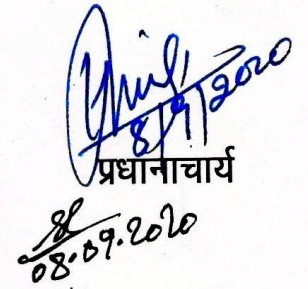 8/9/2020
प्रधानाचार्य
08.09.2020